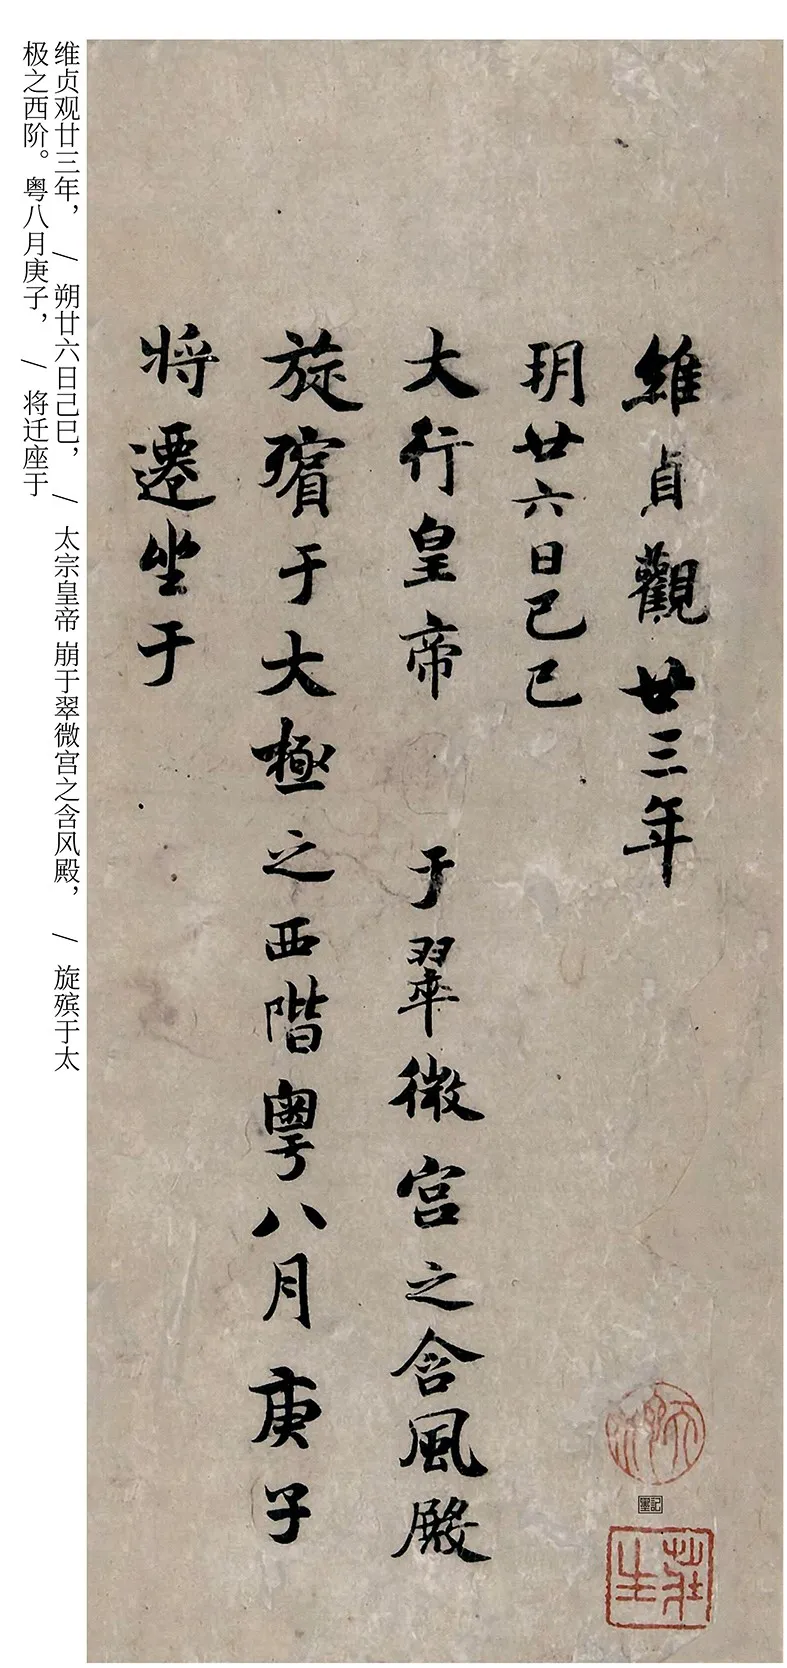 維貞觀廿三年
玥廿六日己巳
大行皇帝 于翠微宮之含風殿
旋殯于大極之西階粵八月庚子
將遷坐于
维贞观廿三年， / 朔廿六日己巳， / 太宗皇帝崩于翠微宫之含风殿， / 旋殡于太
极之西阶。粤八月庚子， / 将迁座于
墨記